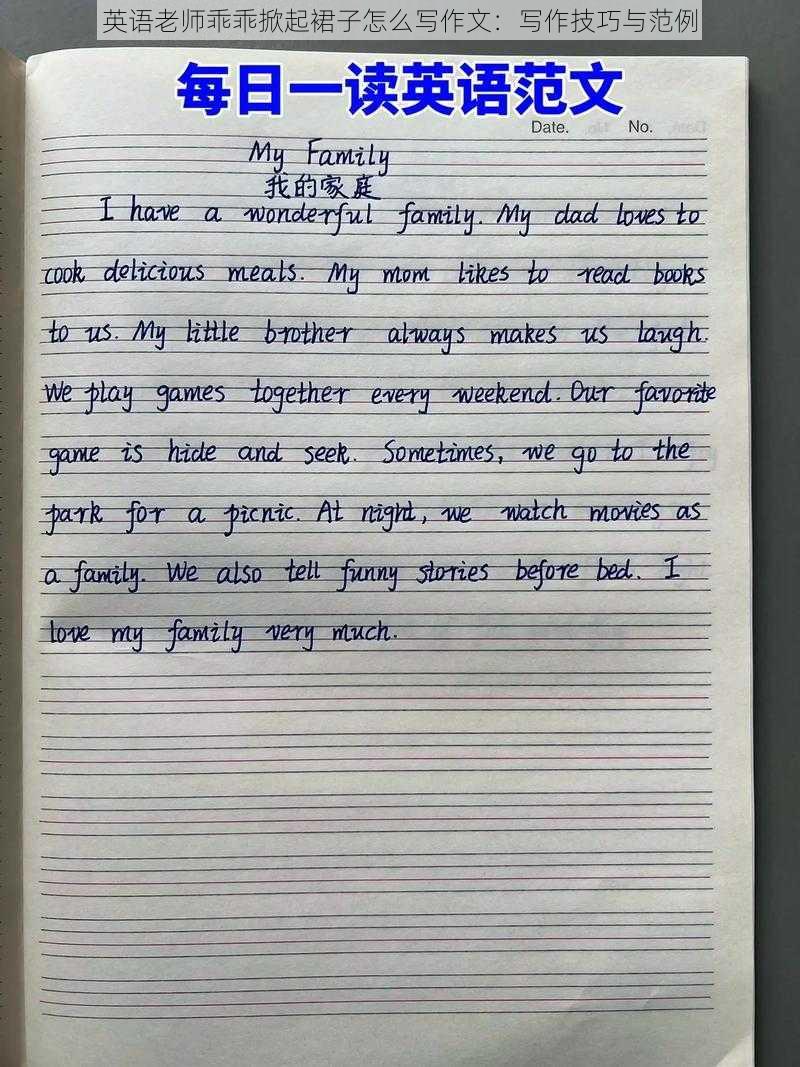 英语老师乖乖掀起裙子怎么写作文：写作技巧与范例
每日一读英语范文
Date. No.
My Family
我的家庭
I have a wonderful family. My dad loves to
cook delicious meals. My mom likes to read books
to us. My little brother always makes us laugh.
We play games together every weekend. Our favorite
game is hide and seek. Sometimes, we go to the
park for a picnic. At night, we watch movies as
a family. We also tell funny stories before bed. I
love my family very much.